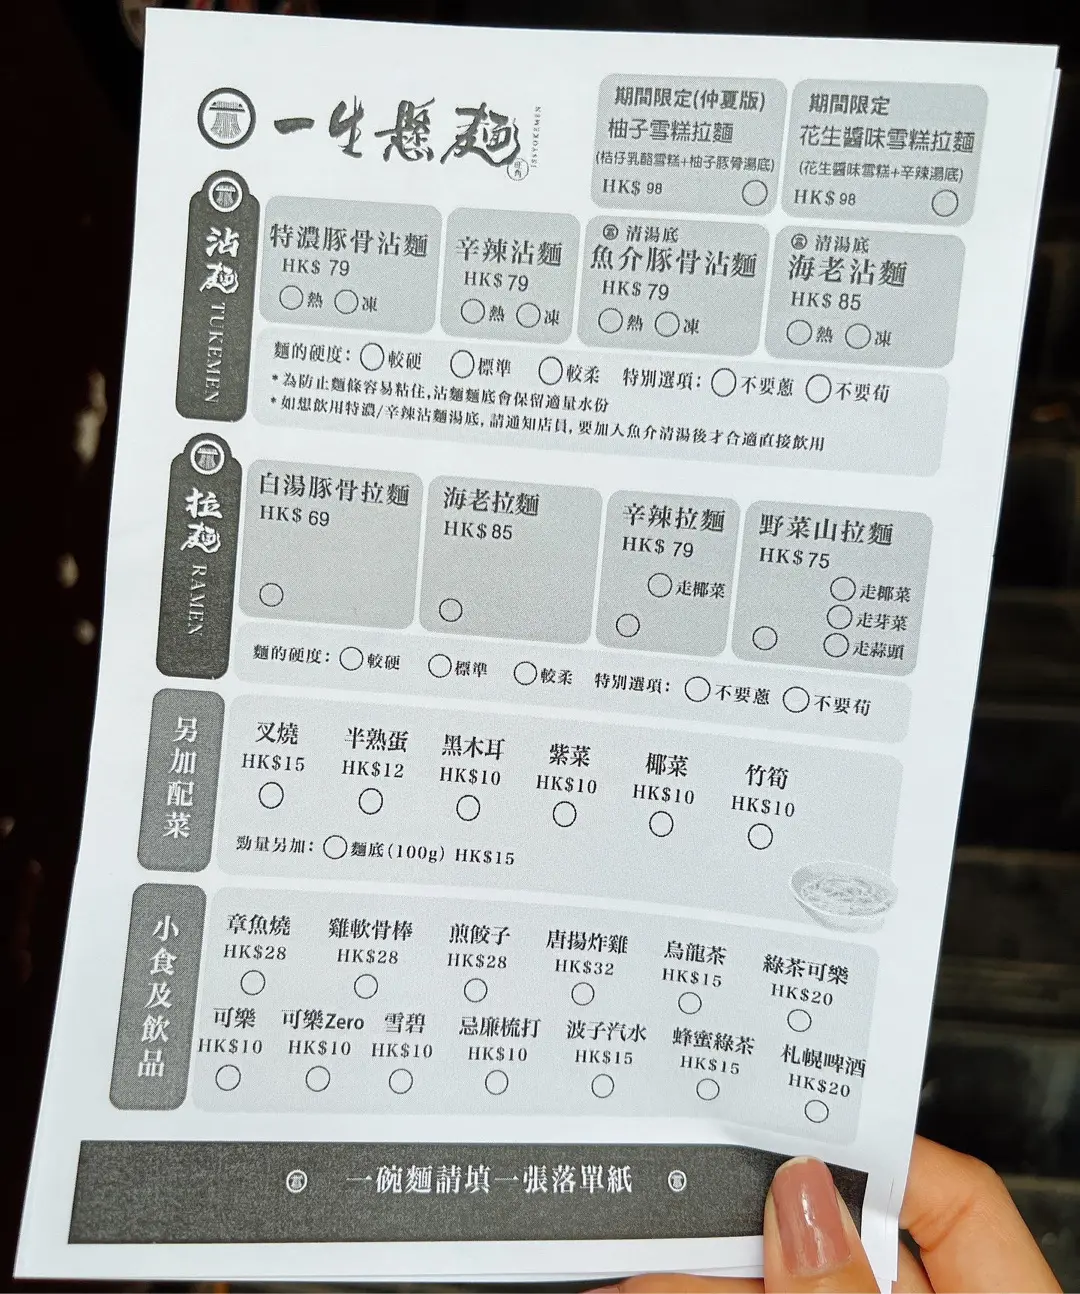 一生懸麵
ISSYOKEMEN
旺角
期間限定(仲夏版)
柚子雪糕拉麵
(桔仔乳酪雪糕+柚子豚骨湯底)
HK$ 98
期間限定
花生醬味雪糕拉麵
(花生醬味雪糕+辛辣湯底)
HK$ 98
沾麵 TUKEMEN
特濃豚骨沾麵
HK$ 79
熱 凍
辛辣沾麵
HK$ 79
熱 凍
清湯底
魚介豚骨沾麵
HK$ 79
熱 凍
清湯底
海老沾麵
HK$ 85
熱 凍
麵的硬度: 較硬 標準 較柔 特別選項: 不要蔥 不要荀
*為防止麵條容易粘住,沾麵麵底會保留適量水份
*如想飲用特濃/辛辣沾麵湯底, 請通知店員, 要加入魚介清湯後才合適直接飲用
拉麵 RAMEN
白湯豚骨拉麵
HK$ 69
海老拉麵
HK$ 85
辛辣拉麵
HK$ 79
走椰菜
野菜山拉麵
HK$ 75
走椰菜
走芽菜
走蒜頭
麵的硬度: 較硬 標準 較柔 特別選項: 不要蔥 不要荀
另加配菜
叉燒 半熟蛋 黑木耳 紫菜 椰菜 竹筍
HK$15 HK$12 HK$10 HK$10 HK$10 HK$10
勁量另加: 麵底(100g) HK$15
小食及飲品
章魚燒 雞軟骨棒 煎餃子 唐揚炸雞 烏龍茶 綠茶可樂
HK$28 HK$28 HK$28 HK$32 HK$15 HK$20
可樂 可樂Zero 雪碧 忌廉梳打 波子汽水 蜂蜜綠茶 札幌啤酒
HK$10 HK$10 HK$10 HK$10 HK$15 HK$15 HK$20
一碗麵請填一張落單紙